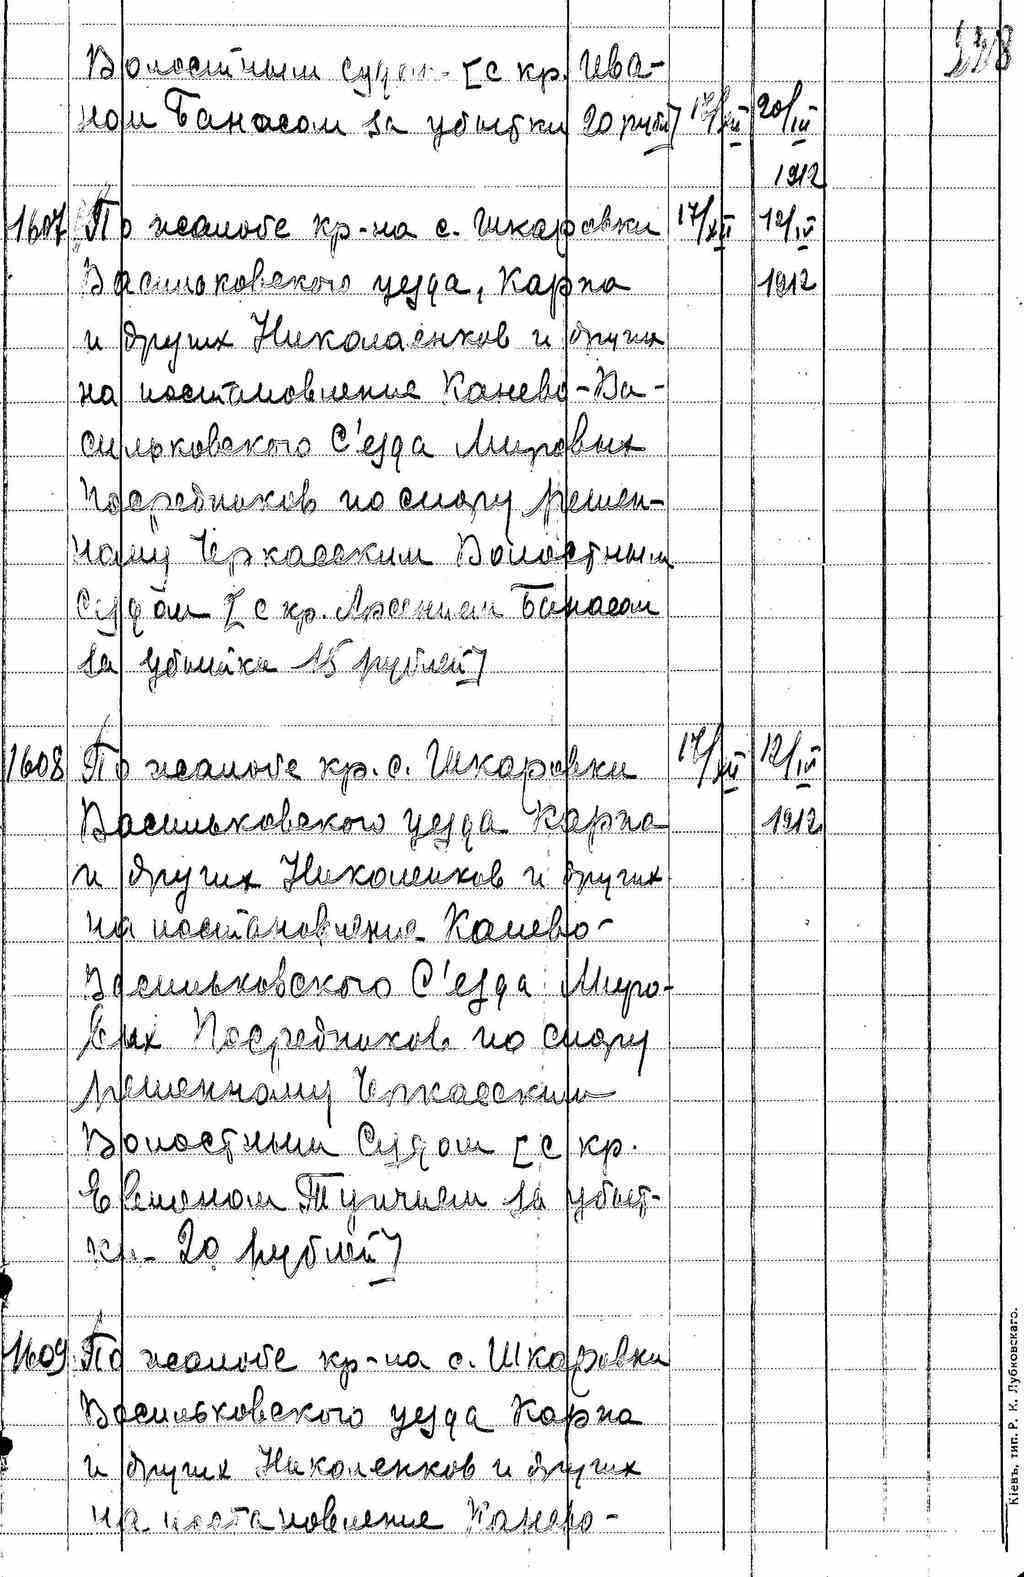 Волостным судом [с кр. Ива-
ном Банасом за убытки 20 рубл] 17/XII 20/III
1912
1607 По жалобе кр-на с. Шкаровки 17/XII 12/IV
Васильковского уезда, Карпа 1912
и других Николаенков и других
на постановление Канево-Ва-
сильковского С'езда Мировых
Посредников по спору решен-
ному Черкасским Волостным
Судом [с кр. Арсением Банасом
за убытки 15 рублей]
1608 По жалобе кр. с. Шкаровки 17/XII 12/IV
Васильковского уезда Карпа 1912
и других Николенков и других
на постановление Канево-
Васильковского С'езда Миро-
вых Посредников по спору
решенному Черкасским
Волостным Судом [с кр.
Евменом Тупчием за убыт-
ки 20 рублей]
1609 По жалобе кр-на с. Шкаровки
Васильковского уезда Карпа
и других Николенков и других
на постановление Канево-
Кіевъ, тип. Р. К. Лубковскаго.